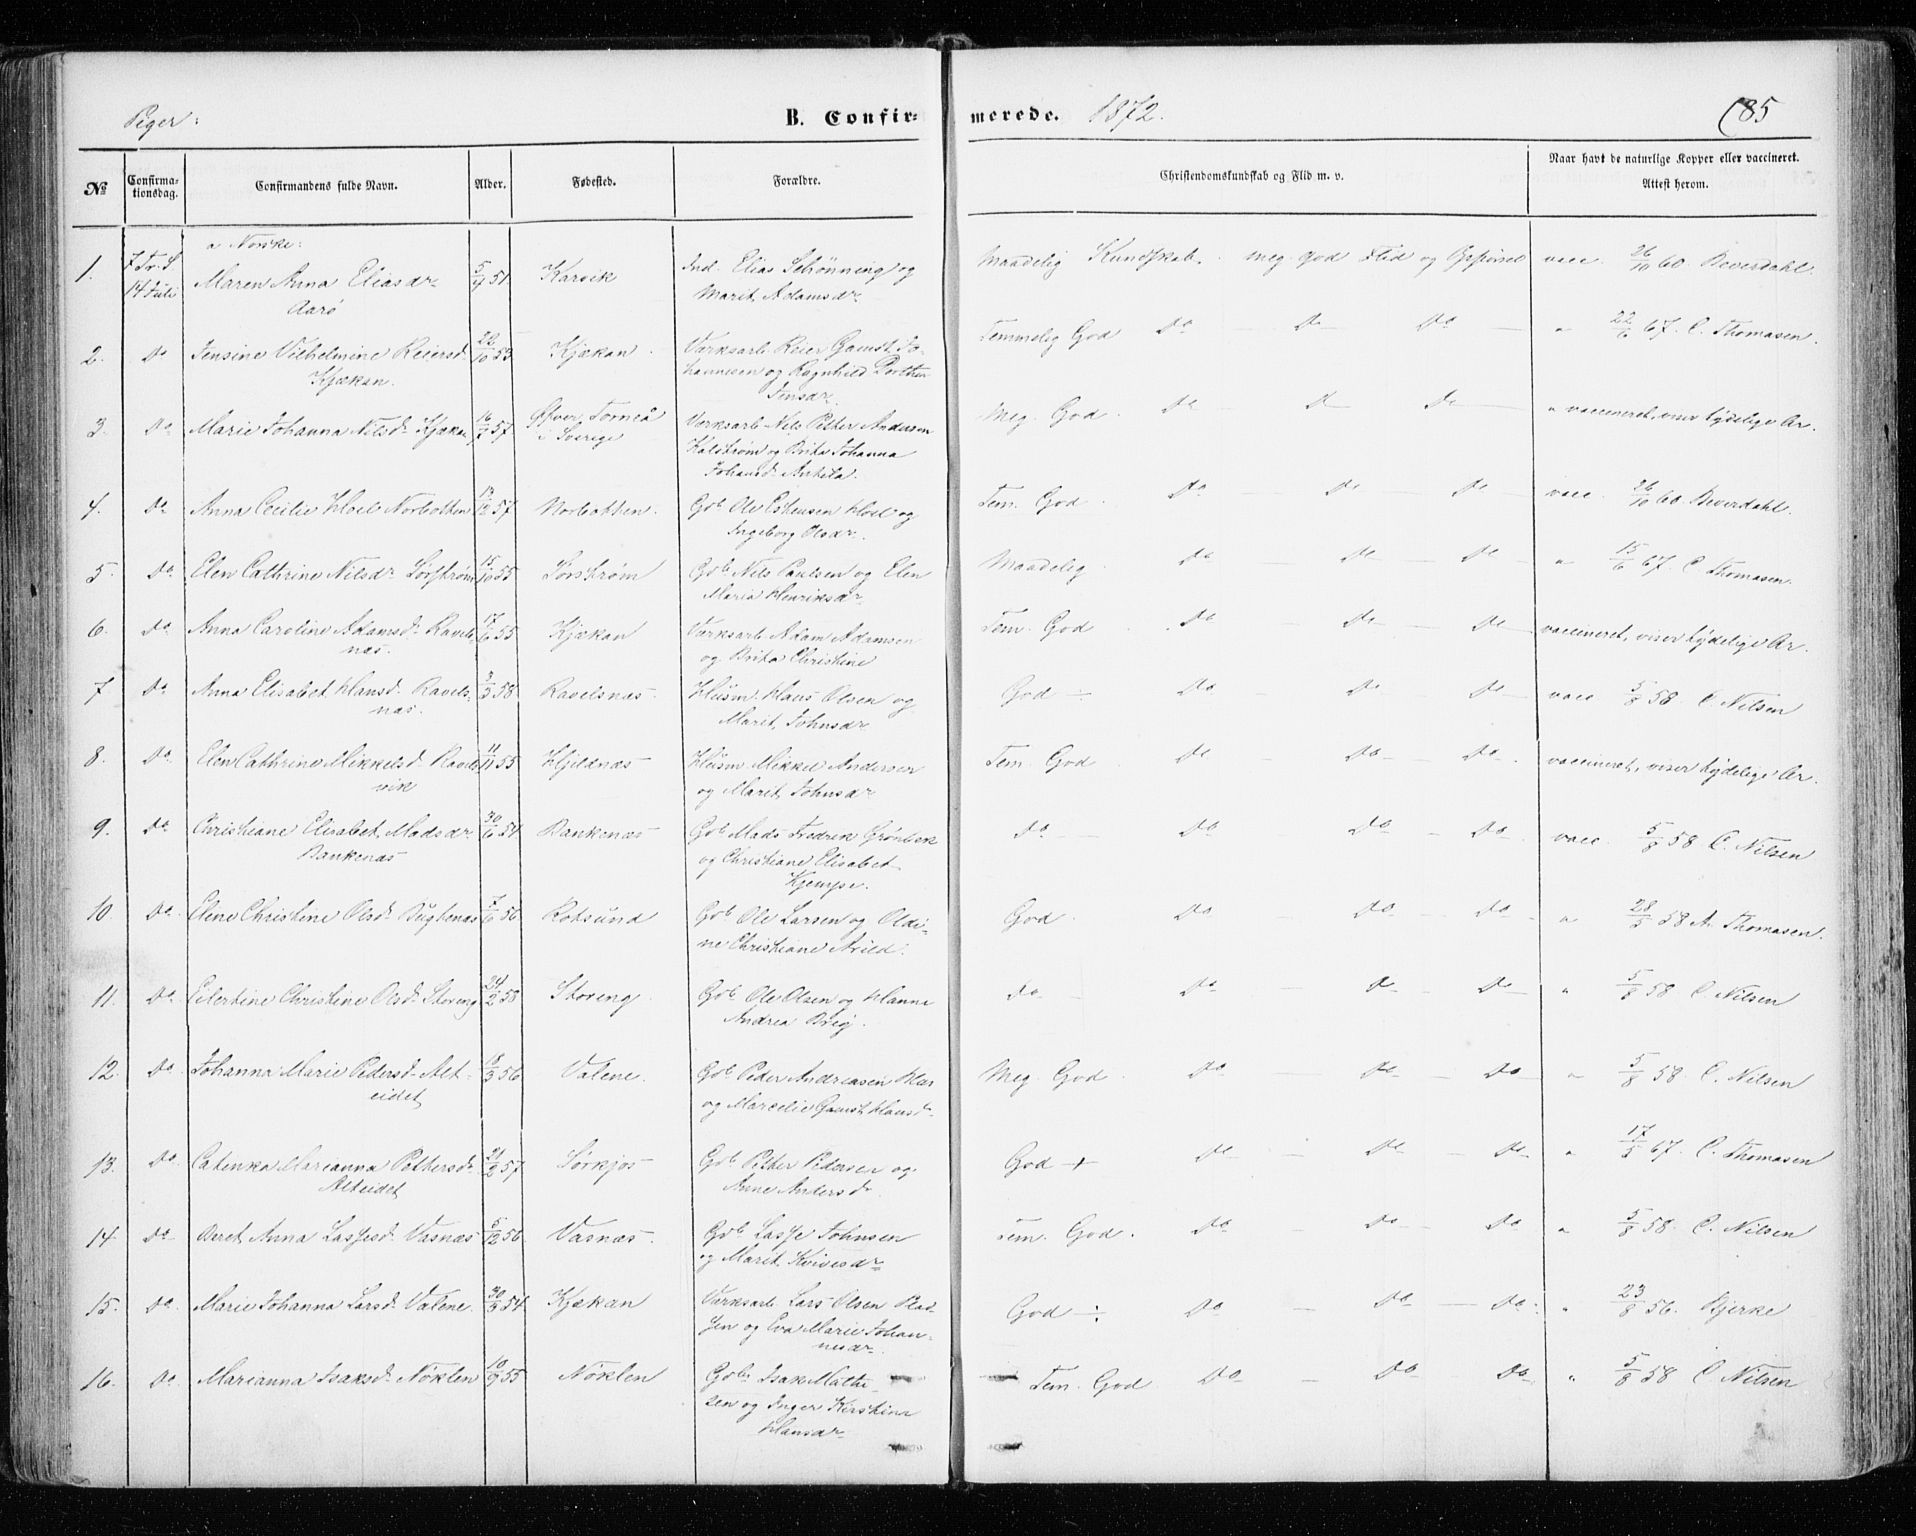 Piger: B. Confirmerede. 1872. 85
No Confirmationsdag. Confirmandens fulde Navn. Alder. Fødested. Forældre. Christendomskundskab og Flid m. v. Naar havt de naturlige Kopper eller vaccineret. Attest herom.
a Norske:
1. 7 Tr. S. 14 Juli Maren Anna Eliasdr 51 Karvik Ind. Elias Schønning og Maadelig Kundskab. meg. god Flid og Opførsel vacc. 26/10 60 Beverdahl.
Aarø Marit Adamsdr
2. Do Jensine Vilhelmine Reiersd. 26/10 53 Kjækan. Værksarb. Reier Gamst Jo- Temmelig God Do Do Do " 22/6 67. C. Thomasen.
Kjækan. hannesen og Ragnhild
Jensdr.
3. Do Marie Johanna Nilsd. Kjækan 16/7 57 Øfver Torneå Værksarb. Nils Petter Andersen Meg. God. Do Do Do " vaccineret, viser tydelige Ar.
i Sverige Kalstrøm og Brita Johanna
Johansd. Anhila.
4. Do Anna Cecilie Hoel Norbotten 13/12 57 Norbotten. Gb. Ole Estensen Hoel og Tem. God. Do Do Do vacc. 26/10 60 Beverdahl.
Ingeborg Olsdr.
5. Do Elen Cathrine Nilsdr. Sørstrøm 15/10 55 Sørstrøm Gb. Nils Paulsen og Elen Maadelig Do Do Do " 15/6 67. C Thomasen.
Maria Henriksdr
6. Do Anna Caroline Adamsd. Ravels- 17/6 55 Kjækan Værksarb. Adam Adamsen Tem. God Do Do Do vaccineret, viser tydelige Ar.
næs. og Brita Christine
7 Do Anna Elisabet Hansd. Ravels- 3/3 58 Ravelsnæs. Husm. Hans Olsen og God ÷ Do Do Do vacc 5/8 58 C. Nilsen
næs. Marit Johnsdr
8. Do Elen Cathrine Mikkelsd. Ravels- 11/11 55 Hjelnæs Husm. Mikkel Andersen Tem. God Do Do Do. vaccineret, viser tydelige Ar.
vik og Marit Johnsdr
9. Do Christiane Elisabet Madsdr 30/6 54 Bankenæs Gb. Mads Fredrik Grønbek Do Do Do Do vacc. 5/8 58 C. Nilsen
Bankenæs og Christiane Elisabet
Kjempe.
10 Do Elene Christine Olsd. Bugtenæs 7/6 56 Rotsund Gb. Ole Larsen og Oldi- God. Do Do Do " 28/5 58 A. Thomasen.
ne Christiane Arild.
11. Do Eilertine Christine Olsd. Storeng 24/2 58 Storeng Gb. Ole Olsen og Hanna Do Do Do Do " 5/8 58 C. Nilsen
Andrea Brig.
12. Do Johanna Marie Pedersd. Alt- 18/3 56 Valene. Gb. Peder Andreasen Meg. God Do Do Do " 5/8 58. C. Nilsen
eidet og Marcelie Gamst Hansd.
13. Do Catenka Marianna Pettersd. 21/2 57 Sørkjos Gb. Petter Pedersen og God + Do Do Do " 17/5 67. C. Thomasen
Alteidet Anne Andersd.
14 Do Beret Anna Lassesd. Vasnæs 5/12 56 Vasnæs. Gb. Lasse Johnsen Tem. God. Do Do Do " 5/8 58. C. Nilsen
og Marit
15. Do. Marie Johanna Larsd. Valene. 30/3 54 Kjækan Værksarb. Lars Olsen God ÷ Do Do Do " 23/8 56. Bjerke
og Eva Marie Johan-
nesdr.
16. Do. Marianna Isaksd. Nøklen 10/9 55 Nøklen Gb. Isak Mathi- Tem. God Do Do Do " 5/8 58 C Nilsen
sen og Inger Kirstina
Hansdr